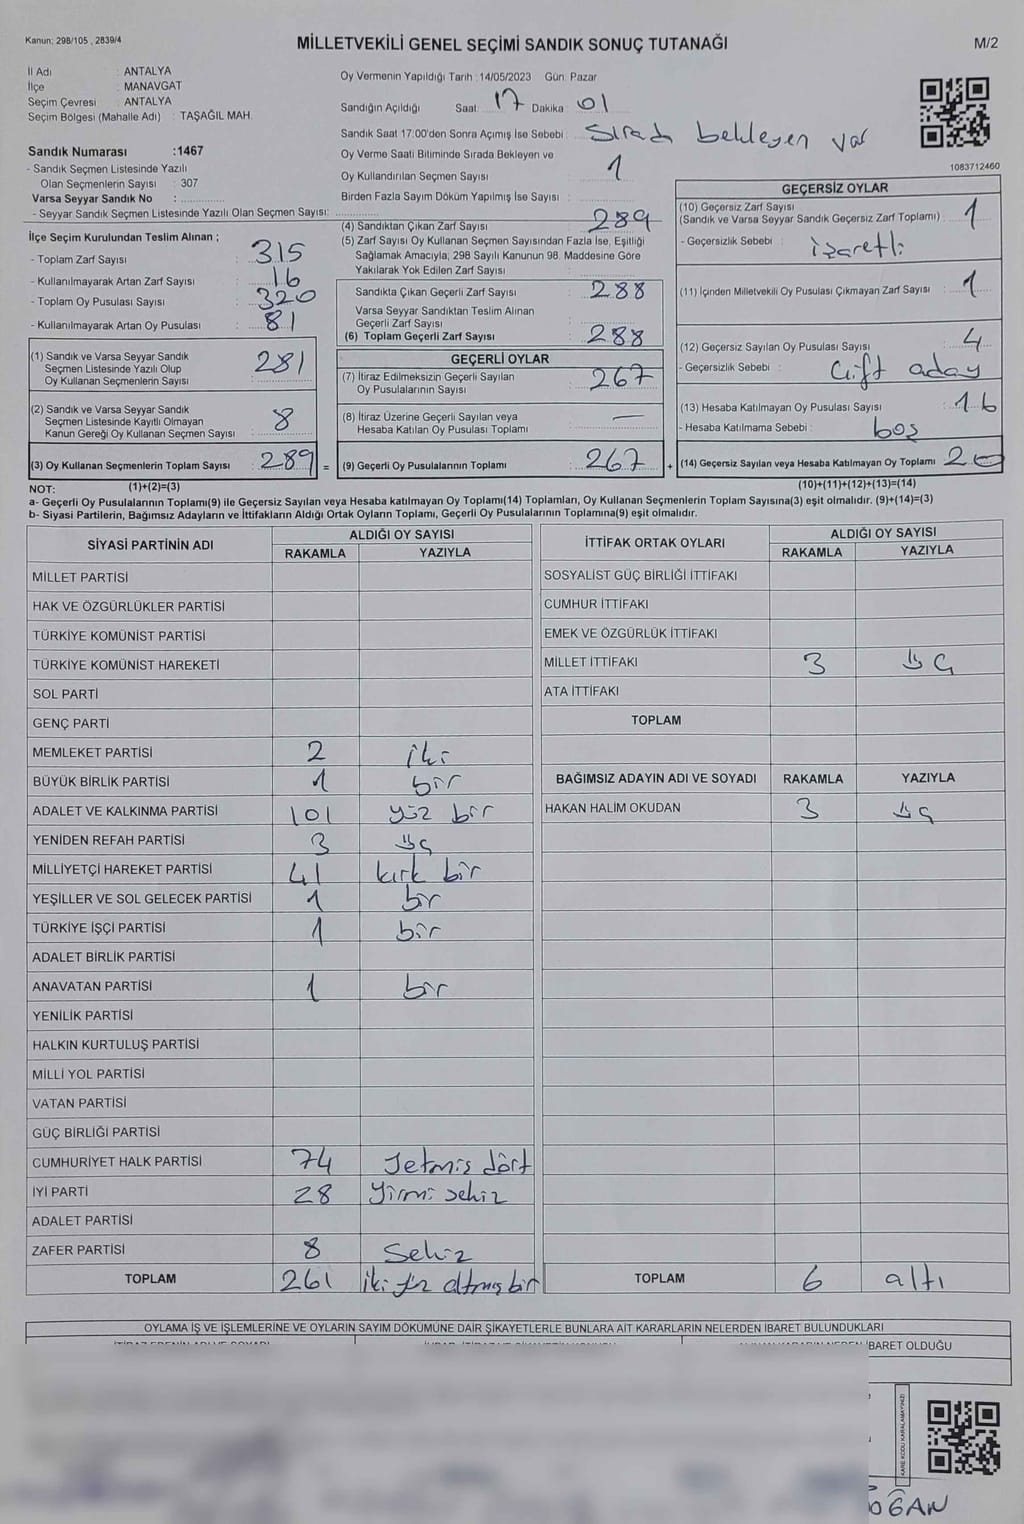 Kanun: 298/105 , 2839/4
MİLLETVEKİLİ GENEL SEÇİMİ SANDIK SONUÇ TUTANAĞI
M/2
İl Adı : ANTALYA
İlçe : MANAVGAT
Seçim Çevresi : ANTALYA
Seçim Bölgesi (Mahalle Adı) : TAŞAĞIL MAH.
Sandık Numarası :1467
- Sandık Seçmen Listesinde Yazılı
Olan Seçmenlerin Sayısı : 307
Varsa Seyyar Sandık No :
- Seyyar Sandık Seçmen Listesinde Yazılı Olan Seçmen Sayısı:
İlçe Seçim Kurulundan Teslim Alınan ;
- Toplam Zarf Sayısı : 315
- Kullanılmayarak Artan Zarf Sayısı : 16
- Toplam Oy Pusulası Sayısı : 320
- Kullanılmayarak Artan Oy Pusulası : 81
(1) Sandık ve Varsa Seyyar Sandık
Seçmen Listesinde Yazılı Olup
Oy Kullanan Seçmenlerin Sayısı : 281
(2) Sandık ve Varsa Seyyar Sandık
Seçmen Listesinde Kayıtlı Olmayan
Kanun Gereği Oy Kullanan Seçmen Sayısı : 8
(3) Oy Kullanan Seçmenlerin Toplam Sayısı : 289 =
Oy Vermenin Yapıldığı Tarih :14/05/2023 Gün: Pazar
Sandığın Açıldığı Saat: 17 Dakika : 01
Sandık Saat 17:00'den Sonra Açımış İse Sebebi : Sırada bekleyen var
Oy Verme Saati Bitiminde Sırada Bekleyen ve
Oy Kullandırılan Seçmen Sayısı : 1
Birden Fazla Sayım Döküm Yapılmış İse Sayısı :
(4) Sandıktan Çıkan Zarf Sayısı : 289
(5) Zarf Sayısı Oy Kullanan Seçmen Sayısından Fazla İse, Eşitliği
Sağlamak Amacıyla; 298 Sayılı Kanunun 98. Maddesine Göre
Yakılarak Yok Edilen Zarf Sayısı :
Sandıkta Çıkan Geçerli Zarf Sayısı : 288
Varsa Seyyar Sandıktan Teslim Alınan
Geçerli Zarf Sayısı :
(6) Toplam Geçerli Zarf Sayısı : 288
GEÇERLİ OYLAR
(7) İtiraz Edilmeksizin Geçerli Sayılan
Oy Pusulalarının Sayısı : 267
(8) İtiraz Üzerine Geçerli Sayılan veya
Hesaba Katılan Oy Pusulası Toplamı : —
(9) Geçerli Oy Pusulalarının Toplamı : 267 +
1083712460
GEÇERSİZ OYLAR
(10) Geçersiz Zarf Sayısı
(Sandık ve Varsa Seyyar Sandık Geçersiz Zarf Toplamı) : 1
- Geçersizlik Sebebi : işaretli
(11) İçinden Milletvekili Oy Pusulası Çıkmayan Zarf Sayısı : 1
(12) Geçersiz Sayılan Oy Pusulası Sayısı : 4
- Geçersizlik Sebebi : Çift aday
(13) Hesaba Katılmayan Oy Pusulası Sayısı : 16
- Hesaba Katılmama Sebebi : boş
(14) Geçersiz Sayılan veya Hesaba Katılmayan Oy Toplamı : 20
NOT: (1)+(2)=(3) (10)+(11)+(12)+(13)=(14)
a- Geçerli Oy Pusulalarının Toplamı(9) ile Geçersiz Sayılan veya Hesaba Katılmayan Oy Toplamı(14) Toplamları, Oy Kullanan Seçmenlerin Toplam Sayısına(3) eşit olmalıdır. (9)+(14)=(3)
b- Siyasi Partilerin, Bağımsız Adayların ve İttifakların Aldığı Ortak Oyların Toplamı, Geçerli Oy Pusulalarının Toplamına(9) eşit olmalıdır.
SİYASİ PARTİNİN ADI ALDIĞI OY SAYISI
RAKAMLA YAZIYLA
MİLLET PARTİSİ
HAK VE ÖZGÜRLÜKLER PARTİSİ
TÜRKİYE KOMÜNİST PARTİSİ
TÜRKİYE KOMÜNİST HAREKETİ
SOL PARTİ
GENÇ PARTİ
MEMLEKET PARTİSİ 2 iki
BÜYÜK BİRLİK PARTİSİ 1 bir
ADALET VE KALKINMA PARTİSİ 101 yüz bir
YENİDEN REFAH PARTİSİ 3 üç
MİLLİYETÇİ HAREKET PARTİSİ 41 kırk bir
YEŞİLLER VE SOL GELECEK PARTİSİ 1 bir
TÜRKİYE İŞÇİ PARTİSİ 1 bir
ADALET BİRLİK PARTİSİ
ANAVATAN PARTİSİ 1 bir
YENİLİK PARTİSİ
HALKIN KURTULUŞ PARTİSİ
MİLLİ YOL PARTİSİ
VATAN PARTİSİ
GÜÇ BİRLİĞİ PARTİSİ
CUMHURİYET HALK PARTİSİ 74 Yetmiş dört
İYİ PARTİ 28 Yirmi sekiz
ADALET PARTİSİ
ZAFER PARTİSİ 8 Sekiz
TOPLAM 261 İki yüz altmış bir
İTTİFAK ORTAK OYLARI ALDIĞI OY SAYISI
RAKAMLA YAZIYLA
SOSYALİST GÜÇ BİRLİĞİ İTTİFAKI
CUMHUR İTTİFAKI
EMEK VE ÖZGÜRLÜK İTTİFAKI
MİLLET İTTİFAKI 3 üç
ATA İTTİFAKI
TOPLAM
BAĞIMSIZ ADAYIN ADI VE SOYADI RAKAMLA YAZIYLA
HAKAN HALİM OKUDAN 3 üç
TOPLAM 6 altı
OYLAMA İŞ VE İŞLEMLERİNE VE OYLARIN SAYIM DÖKÜMÜNE DAİR ŞİKAYETLERLE BUNLARA AİT KARARLARIN NELERDEN İBARET BULUNDUKLARI
İBARET OLDUĞU
KARE KODU KARALAMAYINIZ!